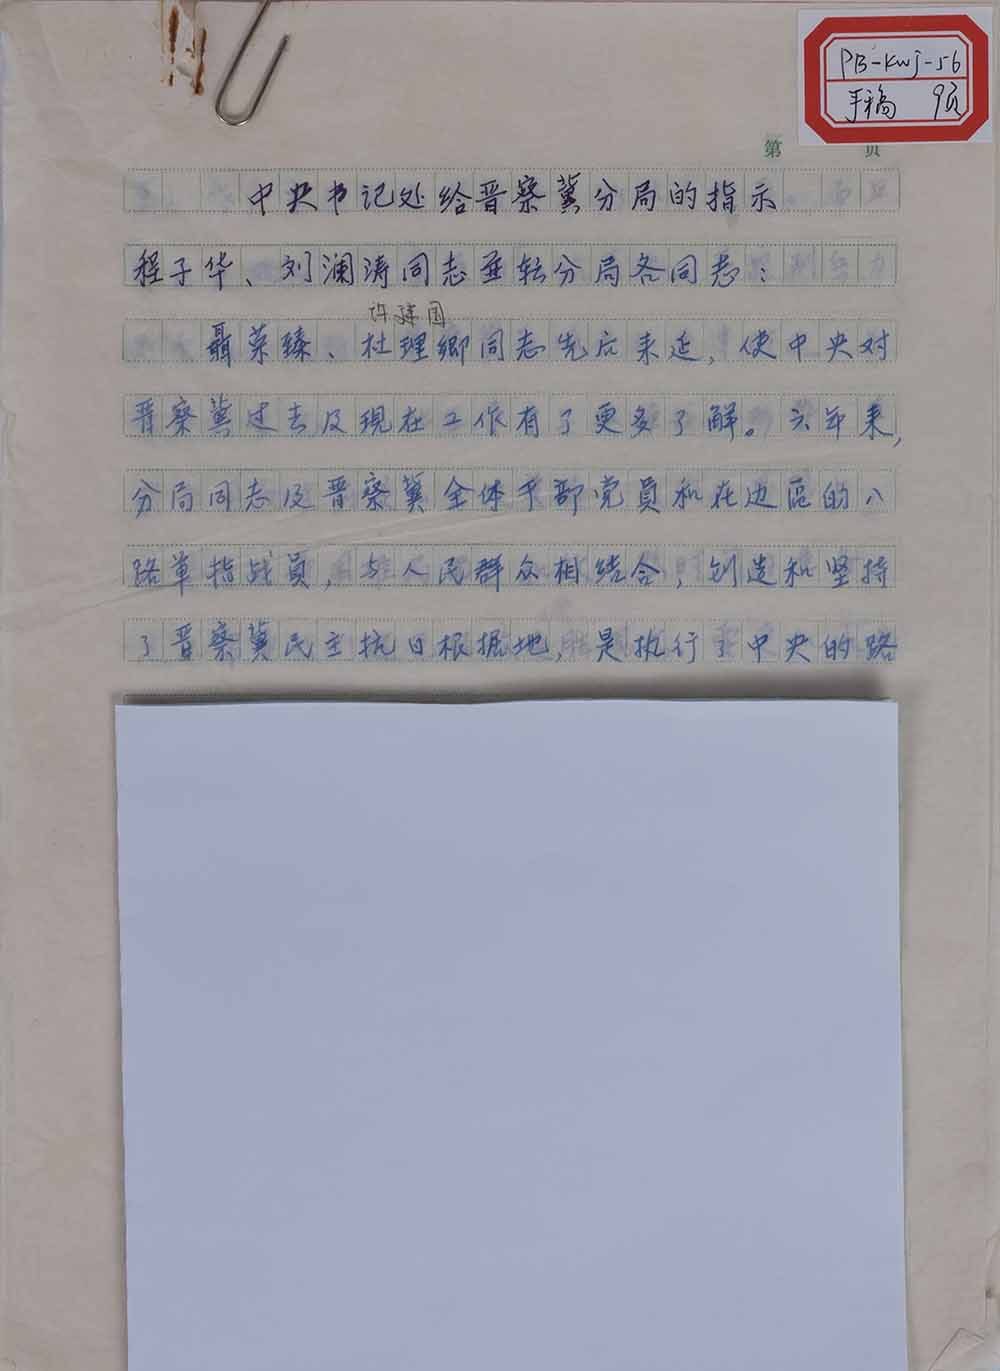 PB-KWJ-56
手稿 9页
第 页
中央书记处给晋察冀分局的指示
程子华、刘澜涛同志并转分局各同志:
许建国
聂荣臻、杜理卿同志先后来延,使中央对
晋察冀过去及現在工作有了更多了解。六年来,
分局同志及晋察冀全体干部党員和在边區的八
路軍指战員,与人民群众相结合,创造和坚持
了晋察冀民主抗日根据地,是执行了中央的路